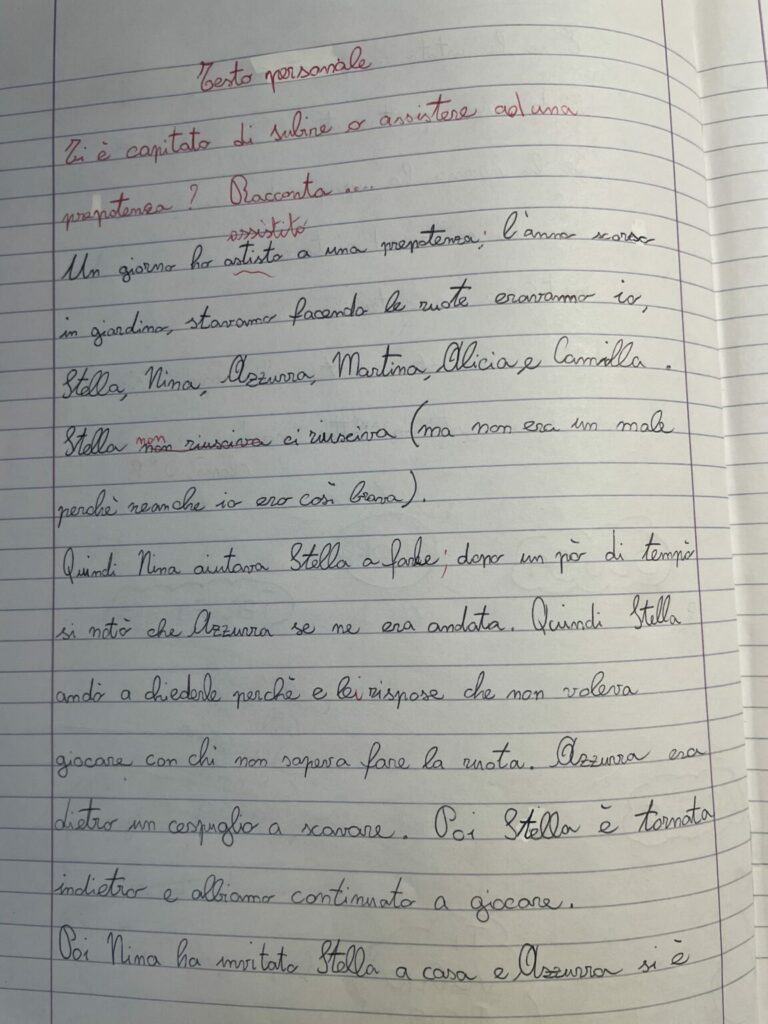 Testo personale
Ti è capitato di subire o assistere ad una
prepotenza? Racconta ....
assistito
Un giorno ho astisto a una prepotenza; l'anno scorso
in giardino, stavamo facendo le ruote eravamo io,
Stella, Nina, Azzurra, Martina, Alicia, e Camilla.
Stella non riusciva ci riusciva (ma non era un male
perchè neanche io ero così brava).
Quindi Nina aiutava Stella a farle; dopo un pò di tempo
si notò che Azzurra se ne era andata. Quindi Stella
andò a chiederle perchè e lei rispose che non voleva
giocare con chi non sapeva fare la ruota. Azzurra era
dietro un cespuglio a scavare. Poi Stella è tornata
indietro e abbiamo continuato a giocare.
Poi Nina ha invitato Stella a casa e Azzurra si è